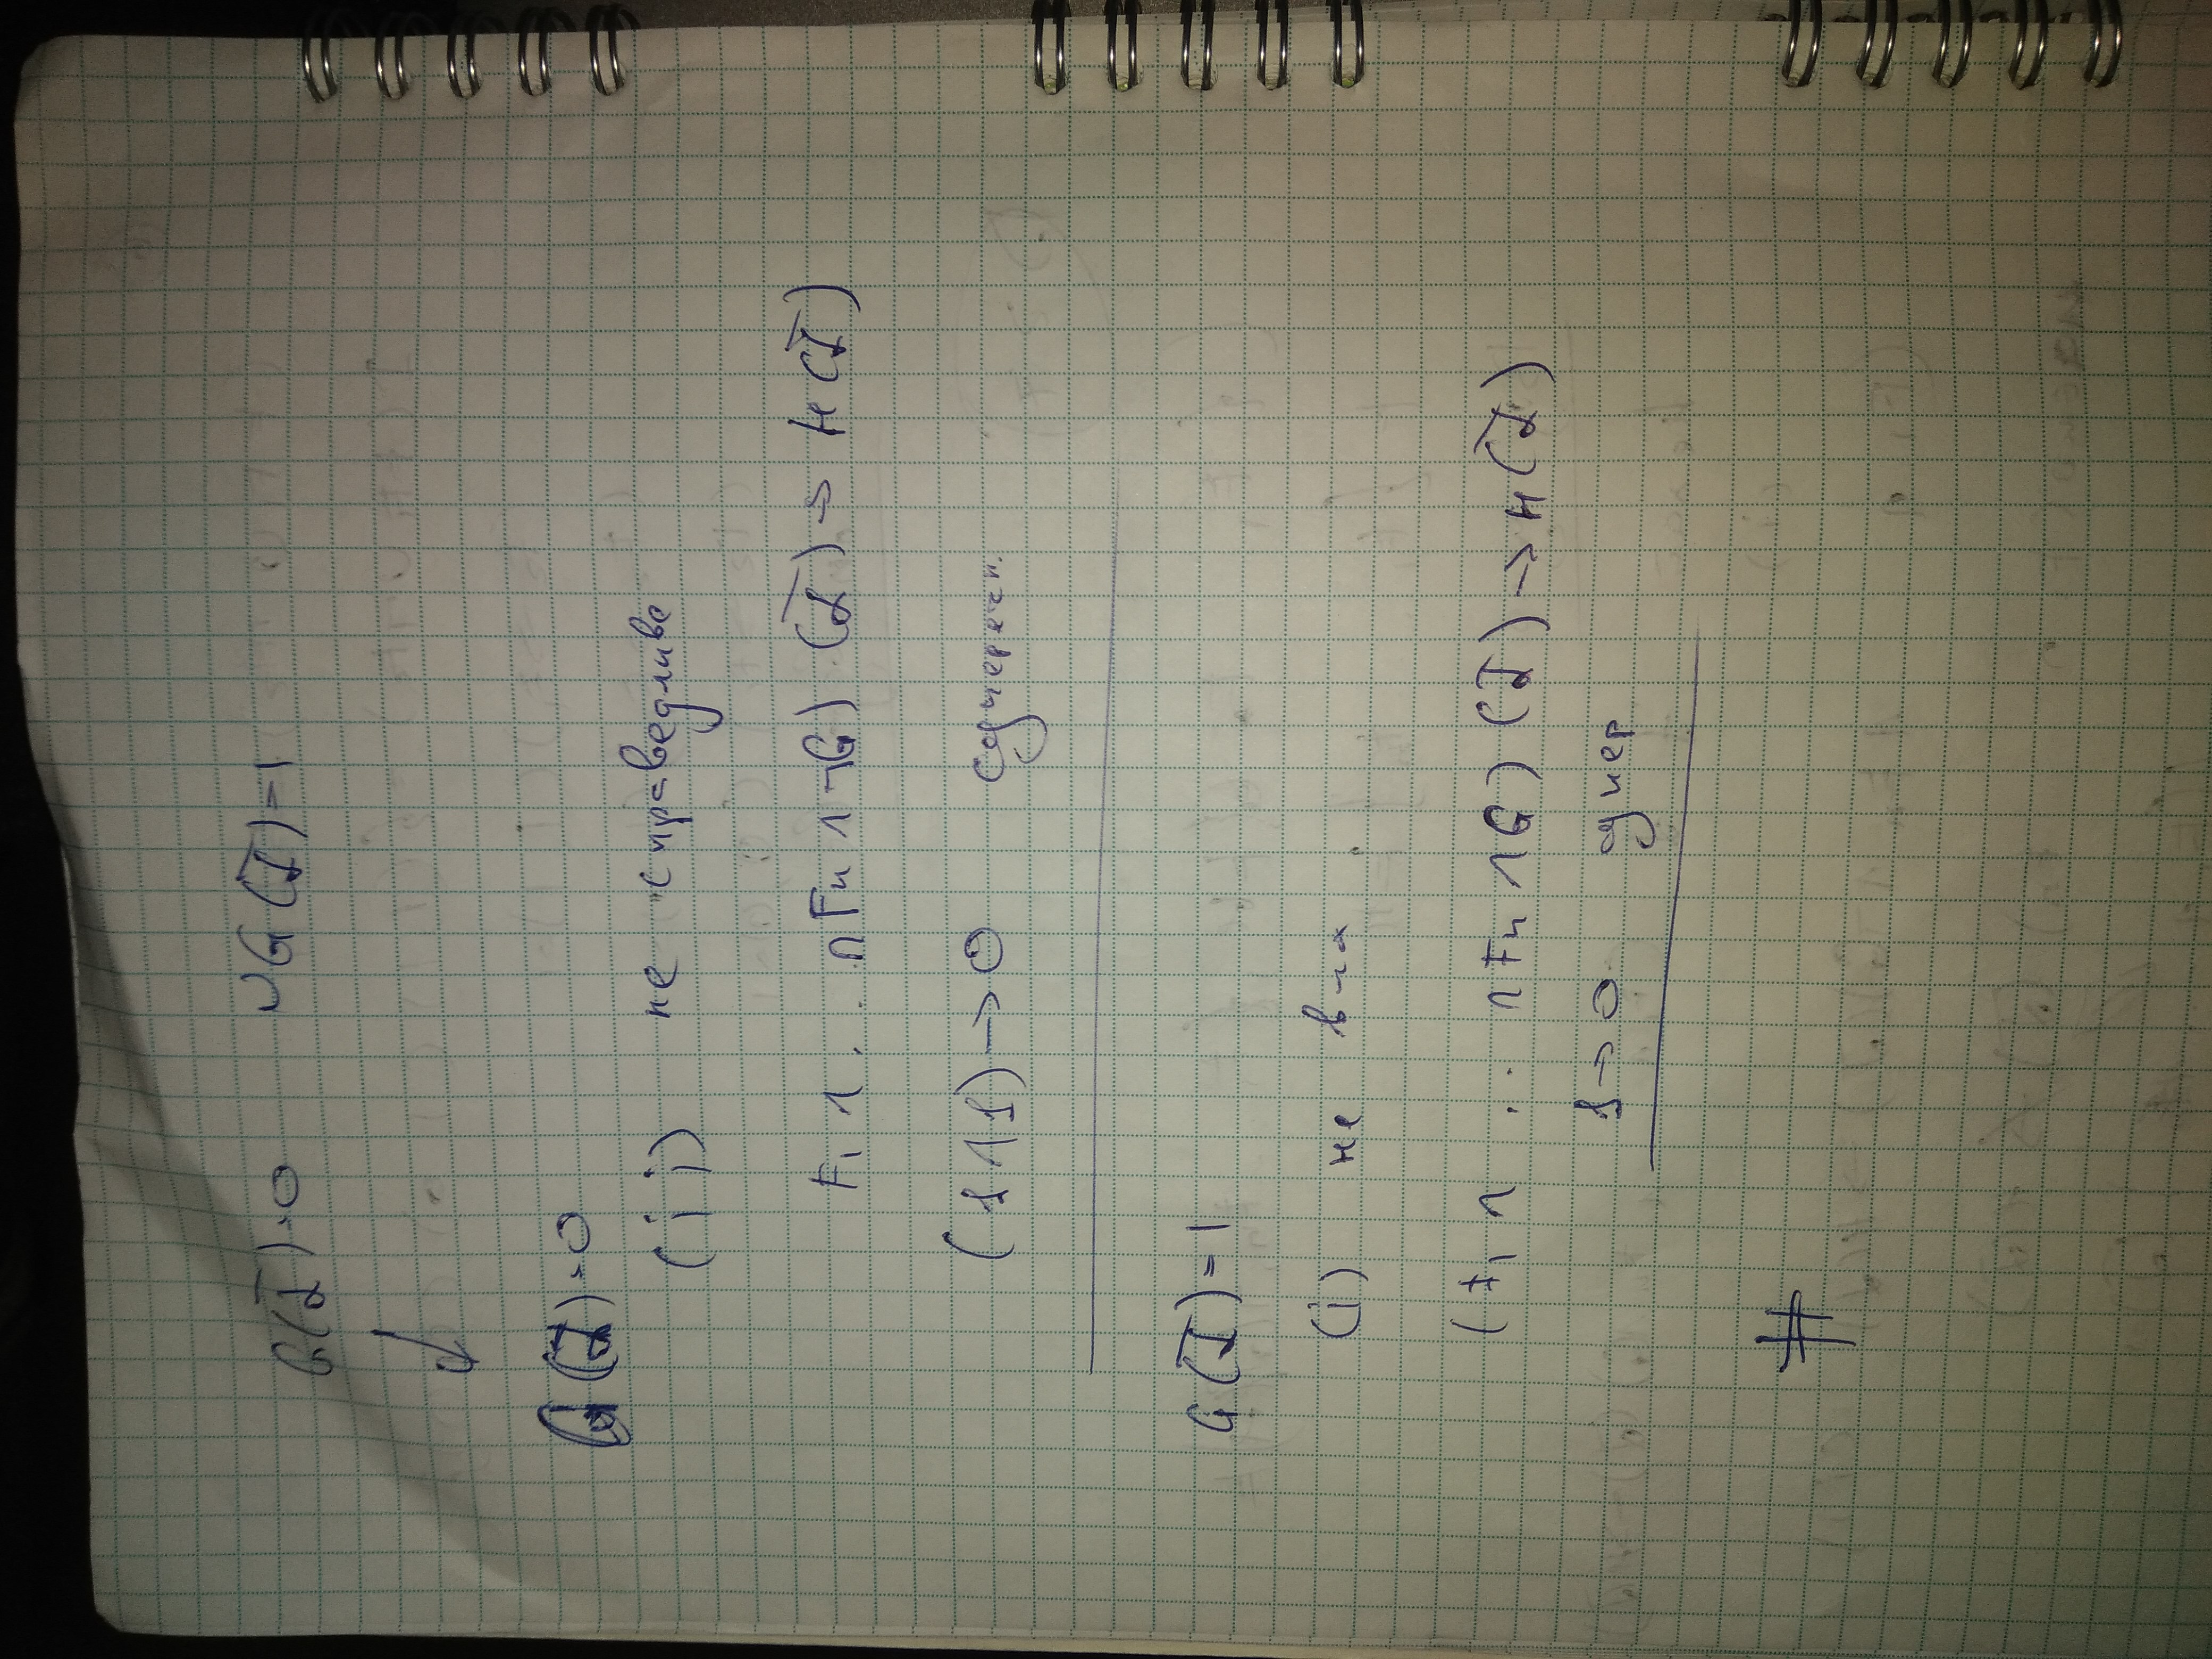 G(α̅)=0 ∪ G(α̅)=1
↙
G(α̅)=0
(ii) не справедливе
F₁ ∧ . . ∩ Fn ∧ ¬G) (α̅) → H(α̅)
(1∧1) → 0 суперечн.
G(α̅)=1
(i) не в-ча
(F₁ ∧ ... ∩ Fn ∧ G) (α̅) → H(α̅)
1 → 0 супер
#